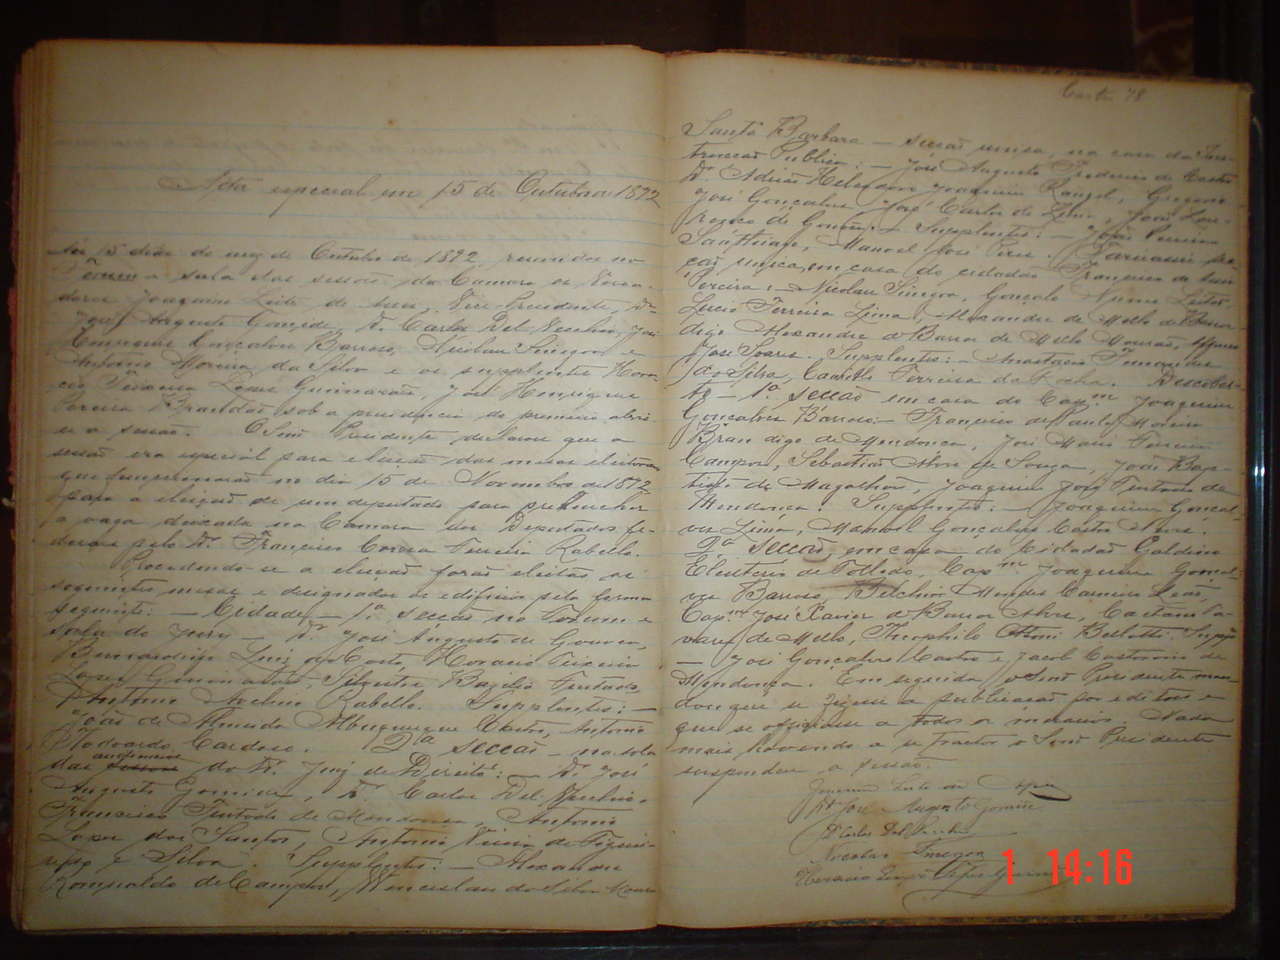 Acta especial em 15 de Outubro de 1892
dias do mez de Outubro de 1892, reunidos no
Forum e sala das sessões da Camara os Verea-
dores Joaquim Leite de Vice-Presidente, Dr.
José Augusto Gomide, Dr. Carlos Del-Vecchio, José
Henrique Gonçalves Barroso, Nicolau Sinegoa e
Antonio Moreira da Silva e os supplentes Hora-
cio Teixeira Lopes Guimarães, José Henrique
Pereira Brandão sob a presidencia do primeiro abrio
se a sessão. O Snr Presidente declarou que a
sessão era especial para eleição das mesas eleitoraes
que funccionarão no dia 15 de Novembro de 1892
para a eleição de um deputado para prehencher
a vaga deixada na Camara dos Deputados fe-
deraes pelo Dr. Francisco Correa Ferreira Rabello.
Procedendo-se a eleição forão eleitas as
seguintes mesas e designados os edificios pela forma
seguinte: — Cidade — 1ª secção no Forum e
sala do Jury — Dr. José Augusto de Gouvea,
Bernardino Luiz da Costa, Horacio Teixeira
Lopes Guimarães, Silvestre Basilio Furtado,
Antonio Avelino Rabello. Supplentes: —
João de Almeida Albuquerque Castro, Antonio
Flodoardo Cardoso. 2ª secção — na sala
das audiencias do Dr. Juiz de Direito: — Dr. José
Augusto Gomide, Dr. Carlos Del-Vecchio,
Francisco Furtado de Mendonca, Antonio
Lopes dos Santos, Antonio Vieira de Figuei-
redo e Silva. Supplentes: — Alexandre
Romualdo de Campos, Wencesláu da Silva
Castro 78
Santa Barbara — secção unica, na casa da Ins-
trucção Publica: — José Augusto Frederico de Castro
Dr. Adrião Joaquim Rangel, Gregorio
José Gonçalves, José Carlos de Lima, João Lou-
renço de Gouvêa. — Supplentes: — João Pereira
Santhiago, Manoel José Pires. Parnauna sec-
ção unica, em casa do cidadão Francisco da Silva
Pereira: — Nicolau Sinegoa, Gonçalo Nunes Leite,
Lucio Ferreira Lima, Alexandre de Mello de Barros
digo Alexandre de Barros de Mello Mourão, Affonso
José Soares. Supplentes: — Anastacio Fernandes
da Silva, Camillo Ferreira da Rocha. Descober-
to — 1ª secção em casa do Capm Joaquim
Gonçalves Barroso: — Francisco de Paula Moreira
Bran digo de Mendonca, José Maria Ferreira
Campos, Sebastião Alves de Souza, João Bap-
tista de Magalhães, Joaquim José Furtado de
Mendonca. Supplentes: — Joaquim Gonçal-
ves Lima, Manoel Gonçalves Castro Alves.
2ª secção, em casa do Cidadão Galdino
Eleuterio de Tolledo, Capm Joaquim Gonçal-
ves Barroso, Belchior Mendes Carneiro Leão,
Capm José Xavier de Barros Alves, Caetano Ta-
vares de Mello, Theophilo Ottoni Bellotti. Supp.
— José Gonçalves Castro e Jacob Castorino de
Mendonca. Em seguida o Snr Presidente man-
dou que se fizesse a publicação por editaes e
que se officiasse a todos os mesarios. Nada
mais havendo a se tractar o Snr Presidente
suspendeu a sessão.
Joaquim Leite de
Dr José Augusto Gomide
Dr Carlos Del-Vecchio
Nicolau Sinegoa
Horacio Teixª Lopes Guimes
1 14:16